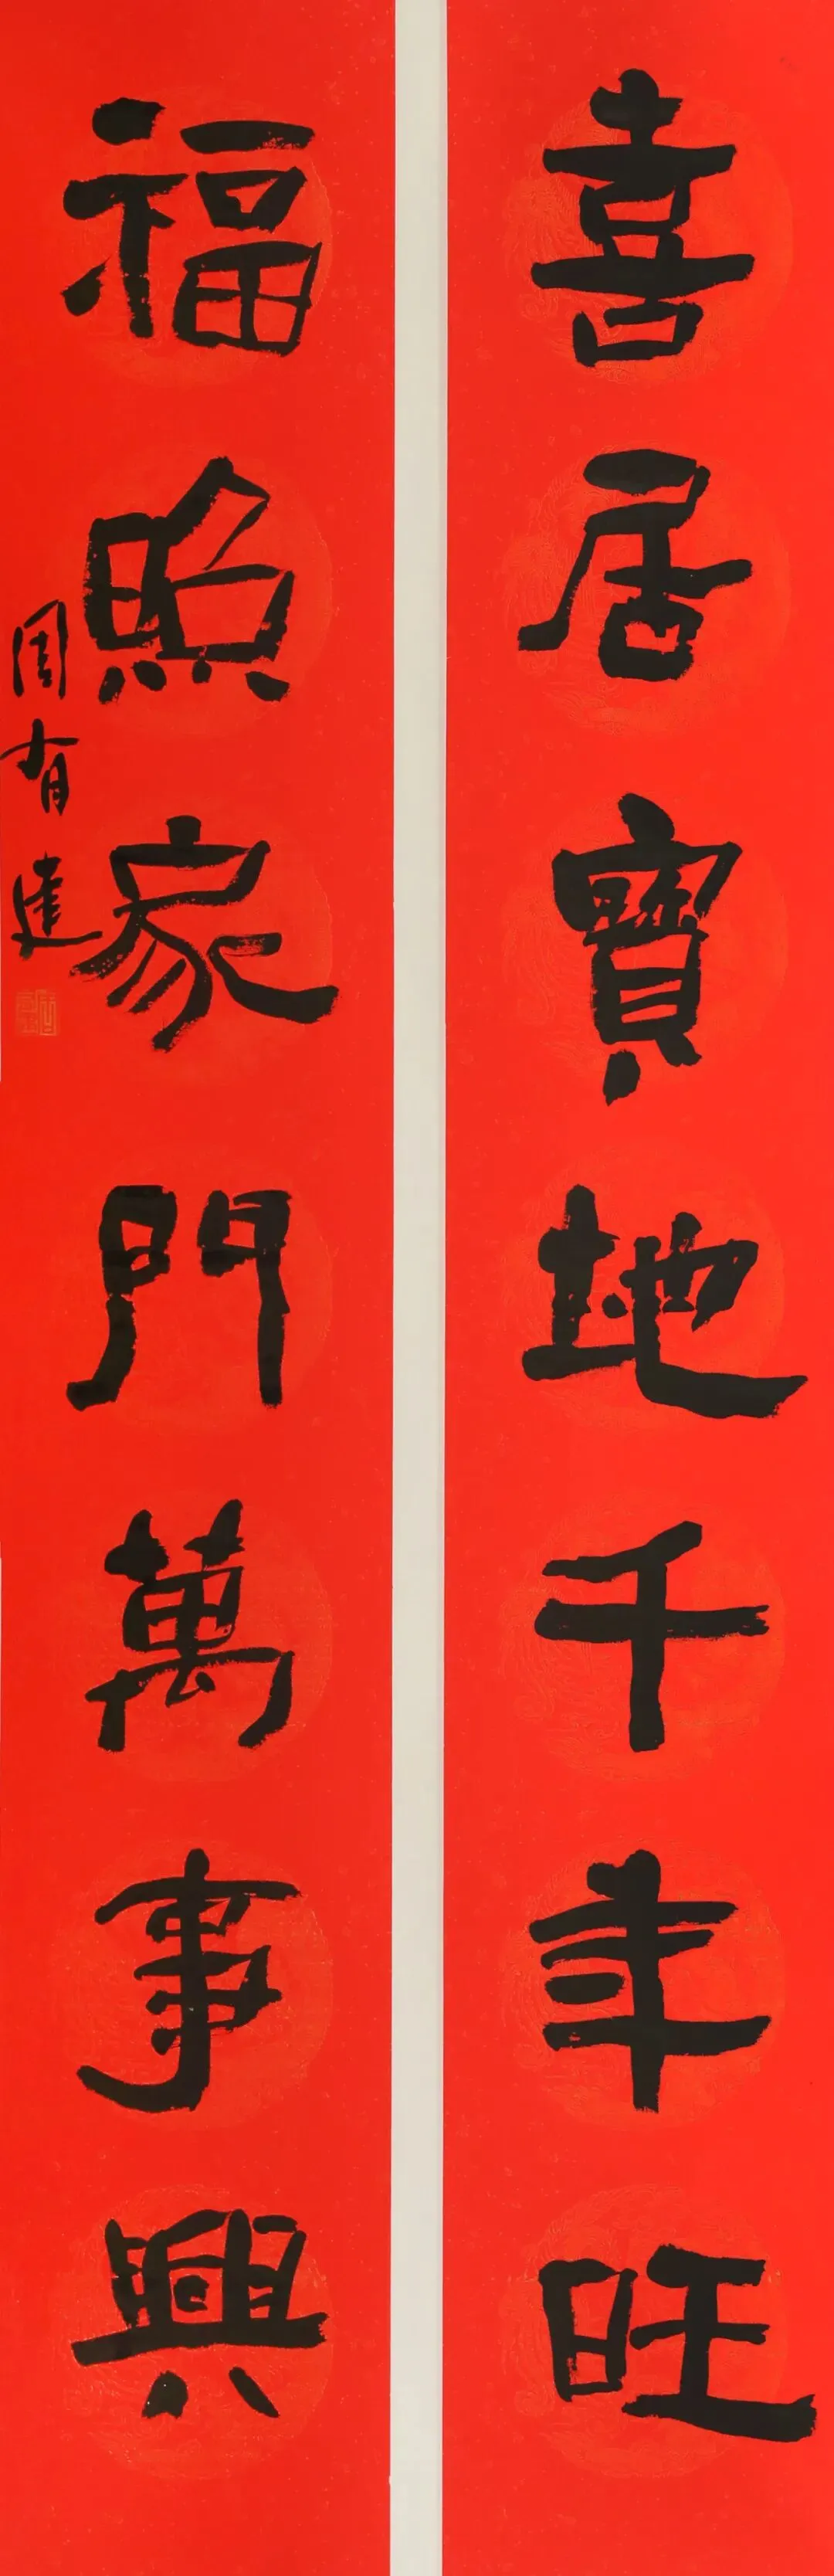 喜居寶地千年旺
福照家門萬事興
周有達